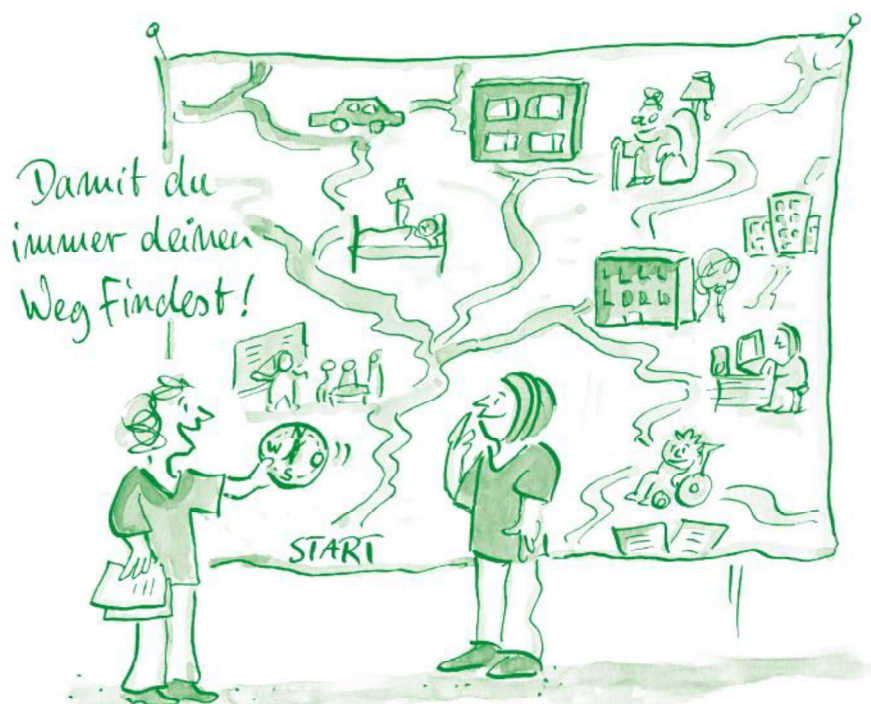 Damit du
immer deinen
Weg findest!
N
W O
S
START